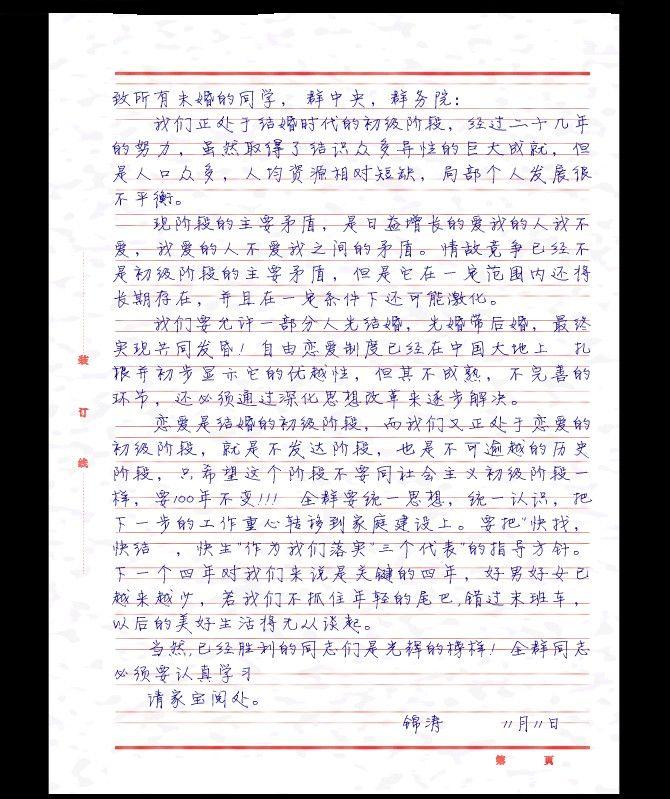 致所有未婚的同学，群中央，群务院：
我们正处于结婚时代的初级阶段，经过二十几年
的努力，虽然取得了结识众多异性的巨大成就，但
是人口众多，人均资源相对短缺，局部个人发展很
不平衡。
现阶段的主要矛盾，是日益增长的爱我的人我不
爱，我爱的人不爱我之间的矛盾。情敌竞争已经不
是初级阶段的主要矛盾，但是它在一定范围内还将
长期存在，并且在一定条件下还可能激化。
我们要允许一部分人先结婚，先婚带后婚，最终
实现共同发昏！自由恋爱制度已经在中国大地上 扎
根并初步显示它的优越性，但其不成熟，不完善的
环节，还必须通过深化思想改革来逐步解决。
恋爱是结婚的初级阶段，而我们又正处于恋爱的
初级阶段，就是不发达阶段，也是不可逾越的历史
阶段，只希望这个阶段不要同社会主义初级阶段一
样，要100年不变!!! 全群要统一思想，统一认识，把
下一步的工作重心转移到家庭建设上。要把"快找，
快结 ，快生"作为我们落实"三个代表"的指导方针。
下一个四年对我们来说是关键的四年，好男好女已
越来越少，若我们不抓住年轻的尾巴,错过末班车，
以后的美好生活将无从谈起。
当然,已经胜利的同志们是光辉的榜样！全群同志
必须要认真学习
请家宝阅处。
锦涛 11月11日
装
订
线
第 页